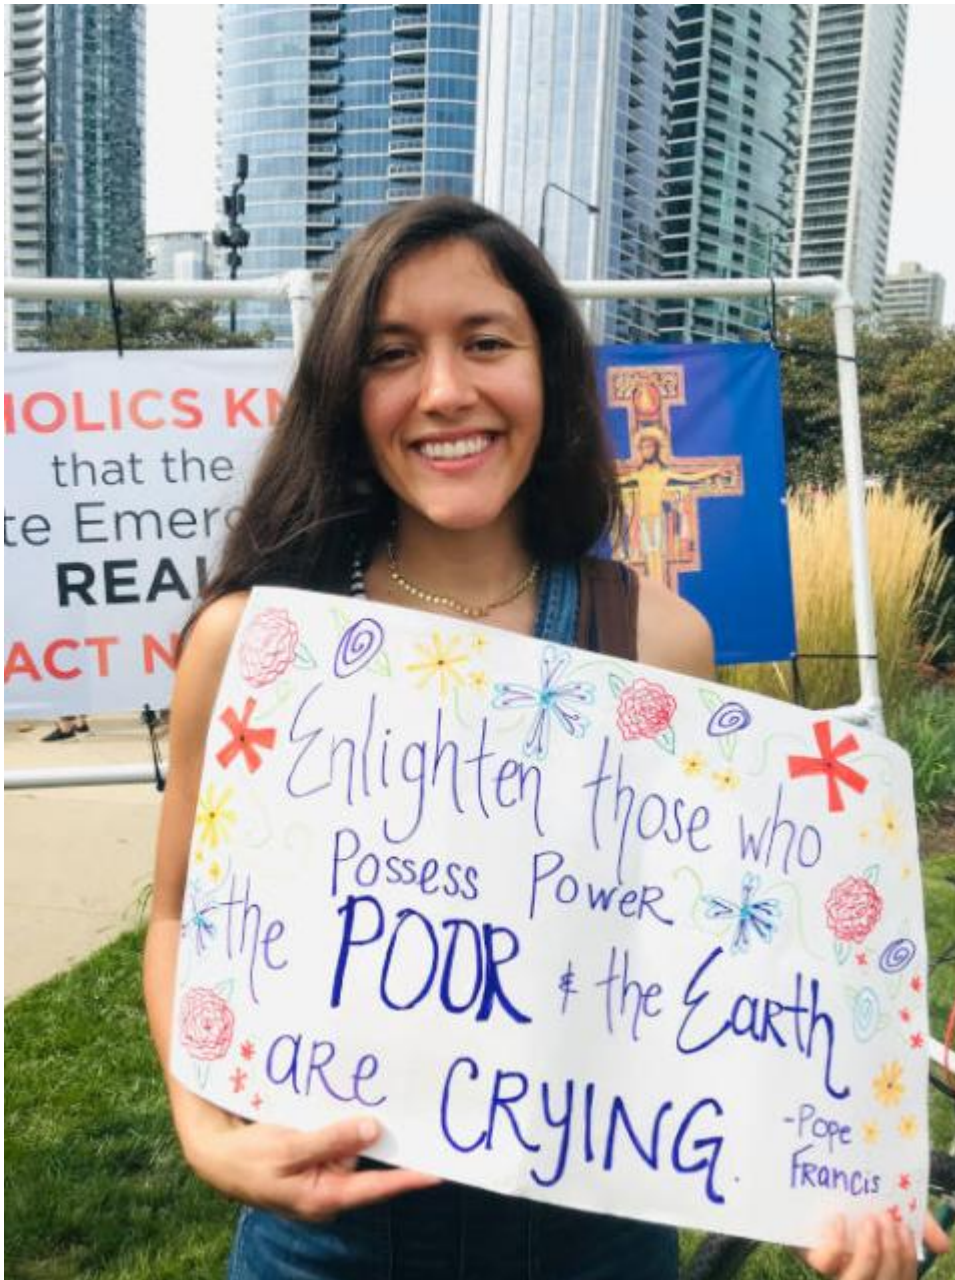 HOLICS KN
that the
te Emerg
REAL
ACT N
Enlighten those who
Possess Power
the POOR & the Earth
are CRYING.
-Pope
Francis